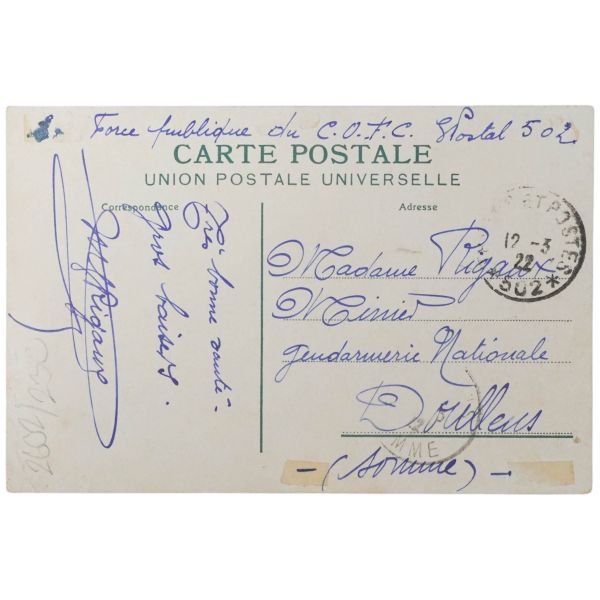 Force publique du C.O.F.C. SPostal 502
CARTE POSTALE
UNION POSTALE UNIVERSELLE
Correspondance
Adresse
Très bonne santé -
Gros baisers.
Rigaux
Madame Rigaux
Gendarmerie Nationale
Doullens
- (Somme) -
POSTES
12 - 3
22
* 502 *
MME